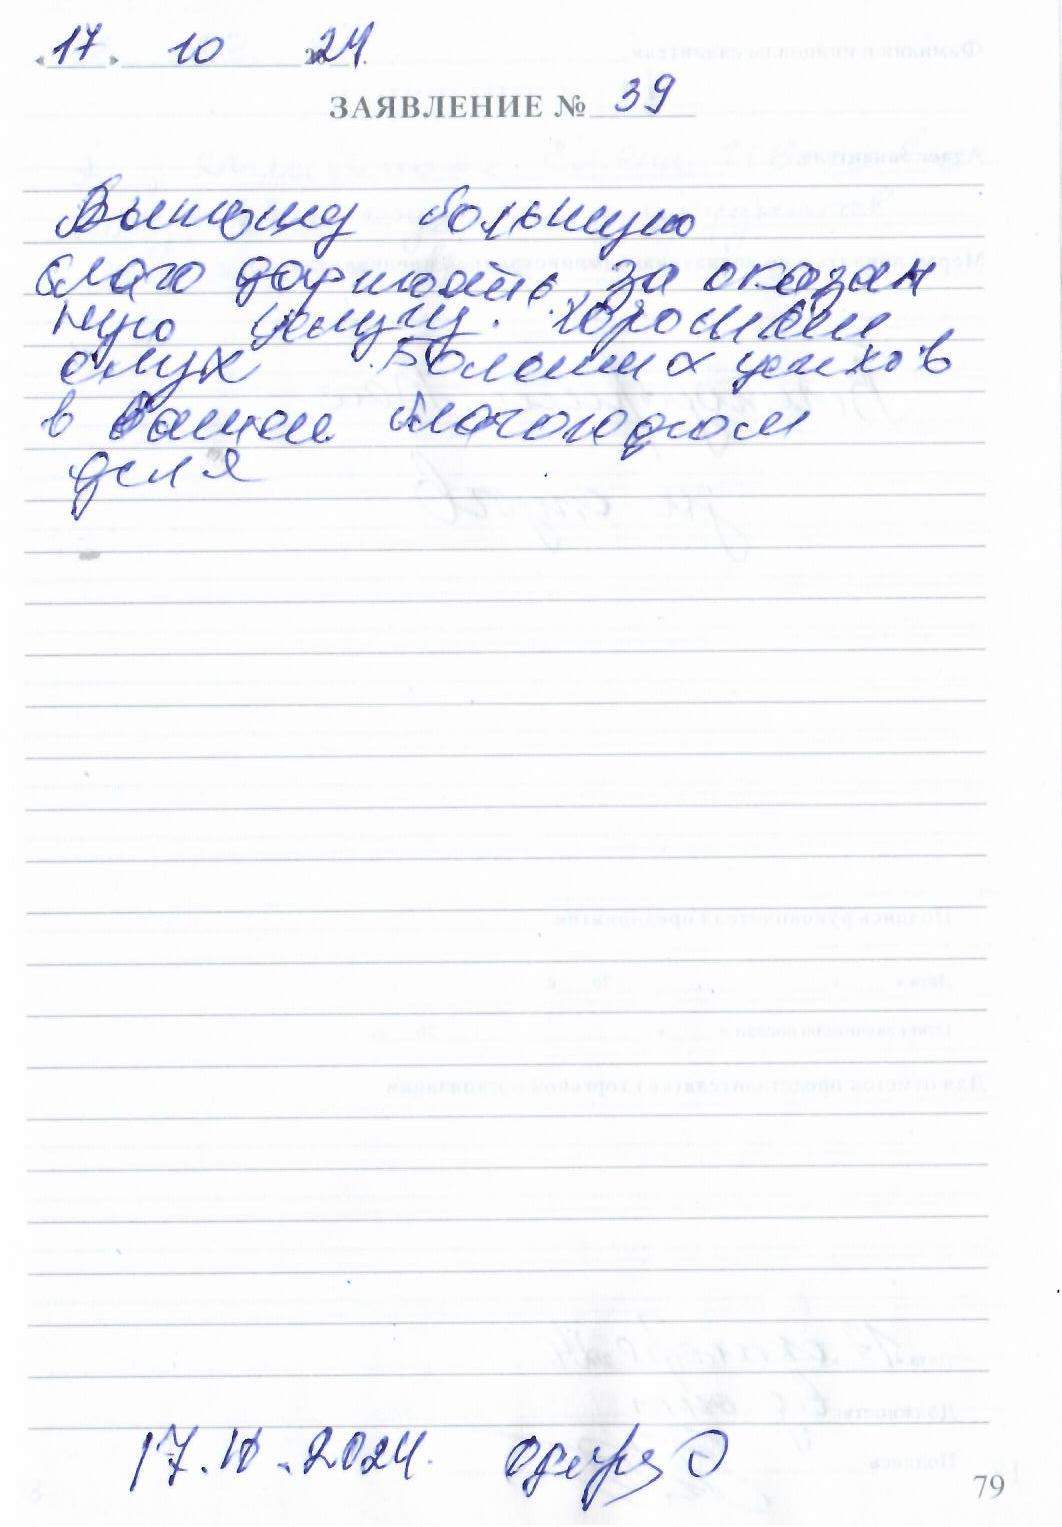 «17» 10 2024.
ЗАЯВЛЕНИЕ № 39
Выношу большую
благо дарность за оказан
ную услугу. Хороший
слух. Больших успехов
в вашем благородном
деле
17.10.2024.
79